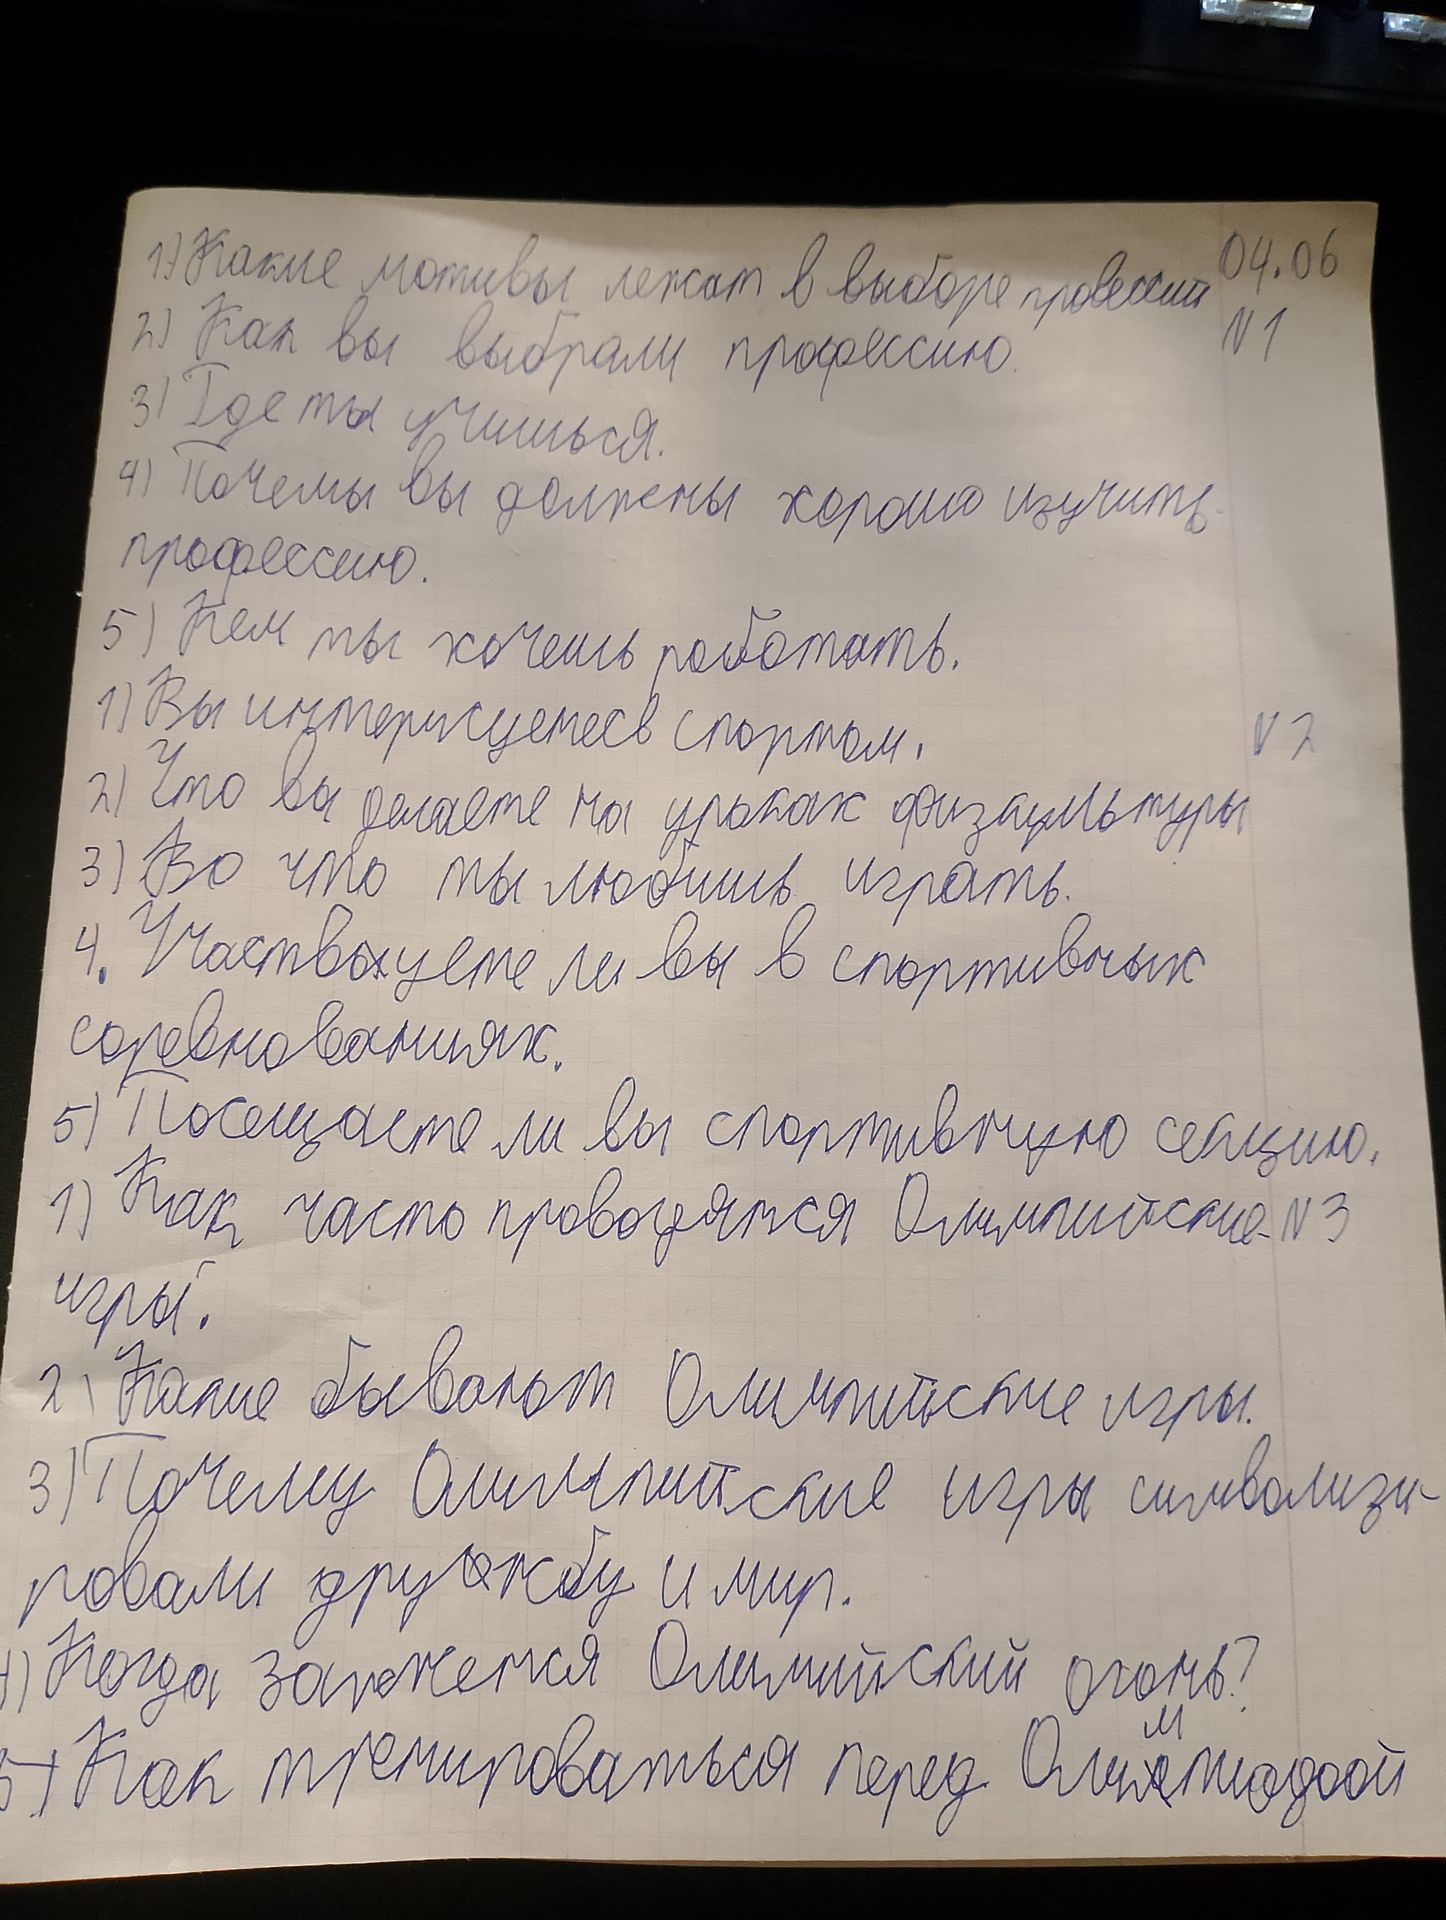 1) Какие мотивы лежат в выборе провессий 04.06
2) Как вы выбрали профессию. N1
3) Где ты учишься.
4) Почемы вы должены хорошо изучить
профессию.
5) Кем ты хочешь работать.
1) Вы интерисуетесь спортом. N2
2) Что вы делаете на уроках физкультуры
3) Во что ты любишь играть.
4. Участвуете ли вы в спортивных
соревнованиях.
5) Посещаете ли вы спортивную секцию.
1) Как часто проводятся Олимпийские N3
игры.
2) Какие бывают Олимпийские игры.
3) Почему Олимпийские игры символизи-
ровали дружбу и мир.
4) Когда зажжется Олимпийский огонь?
5) Как тренироваться перед Олимпиадоой